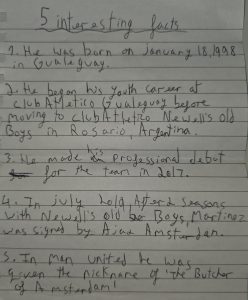 5 interesting facts
1. He was born on January 18, 1998
in Gualeguay.
2. He began his youth career at
club Atletico Gualeguay before
moving to club Atletico Newell's old
Boys in Rosario, Argentina.
3. He made his professional debut
for the team in 2017.
4. In july 2019, After 2 seasons
with Newell's old Boys, Martinez
was signed by Ajax Amsterdam.
5. In man united he was
given the nickname of 'The Butcher
of Amsterdam'